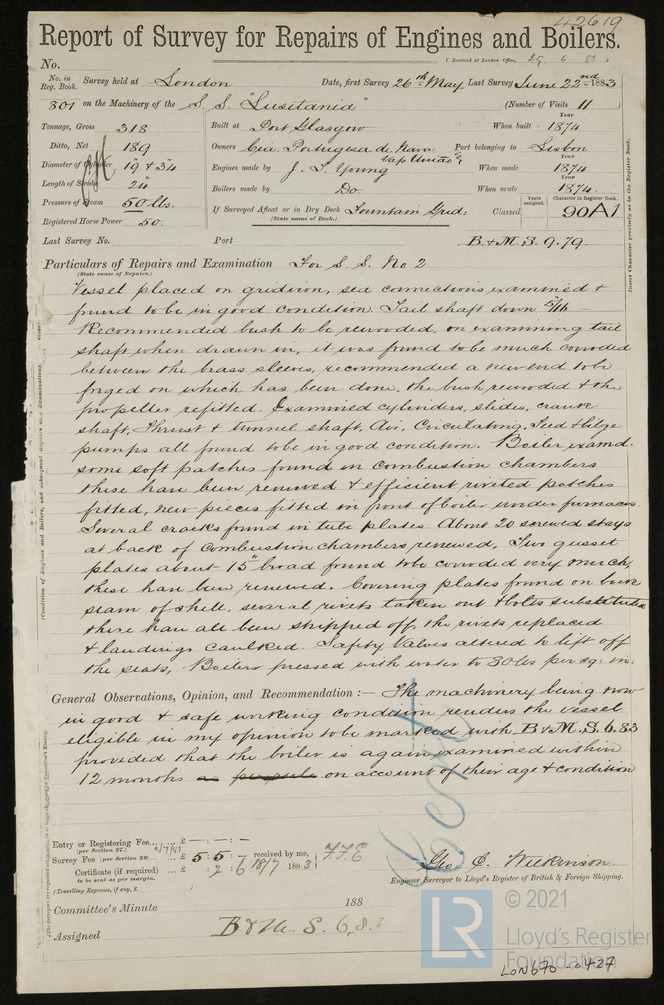 42619
Report of Survey for Repairs of Engines and Boilers.
(Received at London Office, 29. 6. 83)
No.
No. in Reg. Book. Survey held at London Date, first Survey 26th May Last Survey June 22nd 1883
301 on the Machinery of the S. S. "Lusitania" (Number of Visits 11
Tonnage, Gross 318 Built at Port Glasgow When built Year 1874
Ditto, Net 189 Owners Cia. Portugueza de Nava Port belonging to Lisbon
Diameter of Cylinder 19 + 34 Engines made by J. L. Young When made Year 1874
Length of Stroke 24" Boilers made by Do. When made Year 1874.
Pressure of Steam 50 lbs. If Surveyed Afloat or in Dry Dock Fountain Grid: Classed Years assigned. Character in Register Book. 90A1
(State name of Dock.)
Registered Horse Power 50.
Last Survey No. Port B. & M. S. 9. 79.
Insert Character precisely as in the Register Book.
Particulars of Repairs and Examination For S. S. No 2
(State cause of Repairs.)
Vessel placed on gridiron, sea connections examined &
found to be in good condition. Tail shaft down 5/16
Recommended bush to be rewooded, on examining tail
shaft when drawn in, it was found to be much corroded
between the brass sleeves, recommended a new end to be
forged on which has been done, the bush rewooded & the
propeller refitted. Examined cylinders, slides, crank
shaft, Thrust & tunnel shaft, Air, Circulating, Feed & bilge
pumps all found to be in good condition. Boiler examd.
some soft patches found in combustion chambers
these have been removed & efficient riveted patches
fitted, new pieces fitted in front of boiler under furnaces.
Several cracks found in tube plates. About 20 screwed stays
at back of combustion chambers renewed, Two gusset
plates about 15" broad found to be corroded very much,
these have been renewed. Covering plates found on back
seam of shell, several rivets taken out & bolts substituted
these have all been stripped off, the rivets replaced
& landings caulked. Safety Valves altered to lift off
the seats, Boilers pressed with water to 80 lbs per sq. in.
General Observations, Opinion, and Recommendation :— The machinery being now
in good & safe working condition renders the vessel
eligible in my opinion to be marked with B & M. S. 6. 83
provided that the boiler is again examined within
12 months on account of their age & condition
Cert
Entry or Registering Fee... £ — : — : —
(per Section 27.)
Survey Fee (per Section 28) ... £ 5 : 5 : — received by me,
Certificate (if required) ... £ : 2 : 6 18/7 1883
to be sent as per margin.
(Travelling Expenses, if any, £
Geo. C. Wilkinson.
Engineer Surveyor to Lloyd's Register of British & Foreign Shipping.
Committee's Minute 188
Assigned B & M. S. 6, 83
© 2021
LR
Lloyd's Register
Foundation
LON670-0427